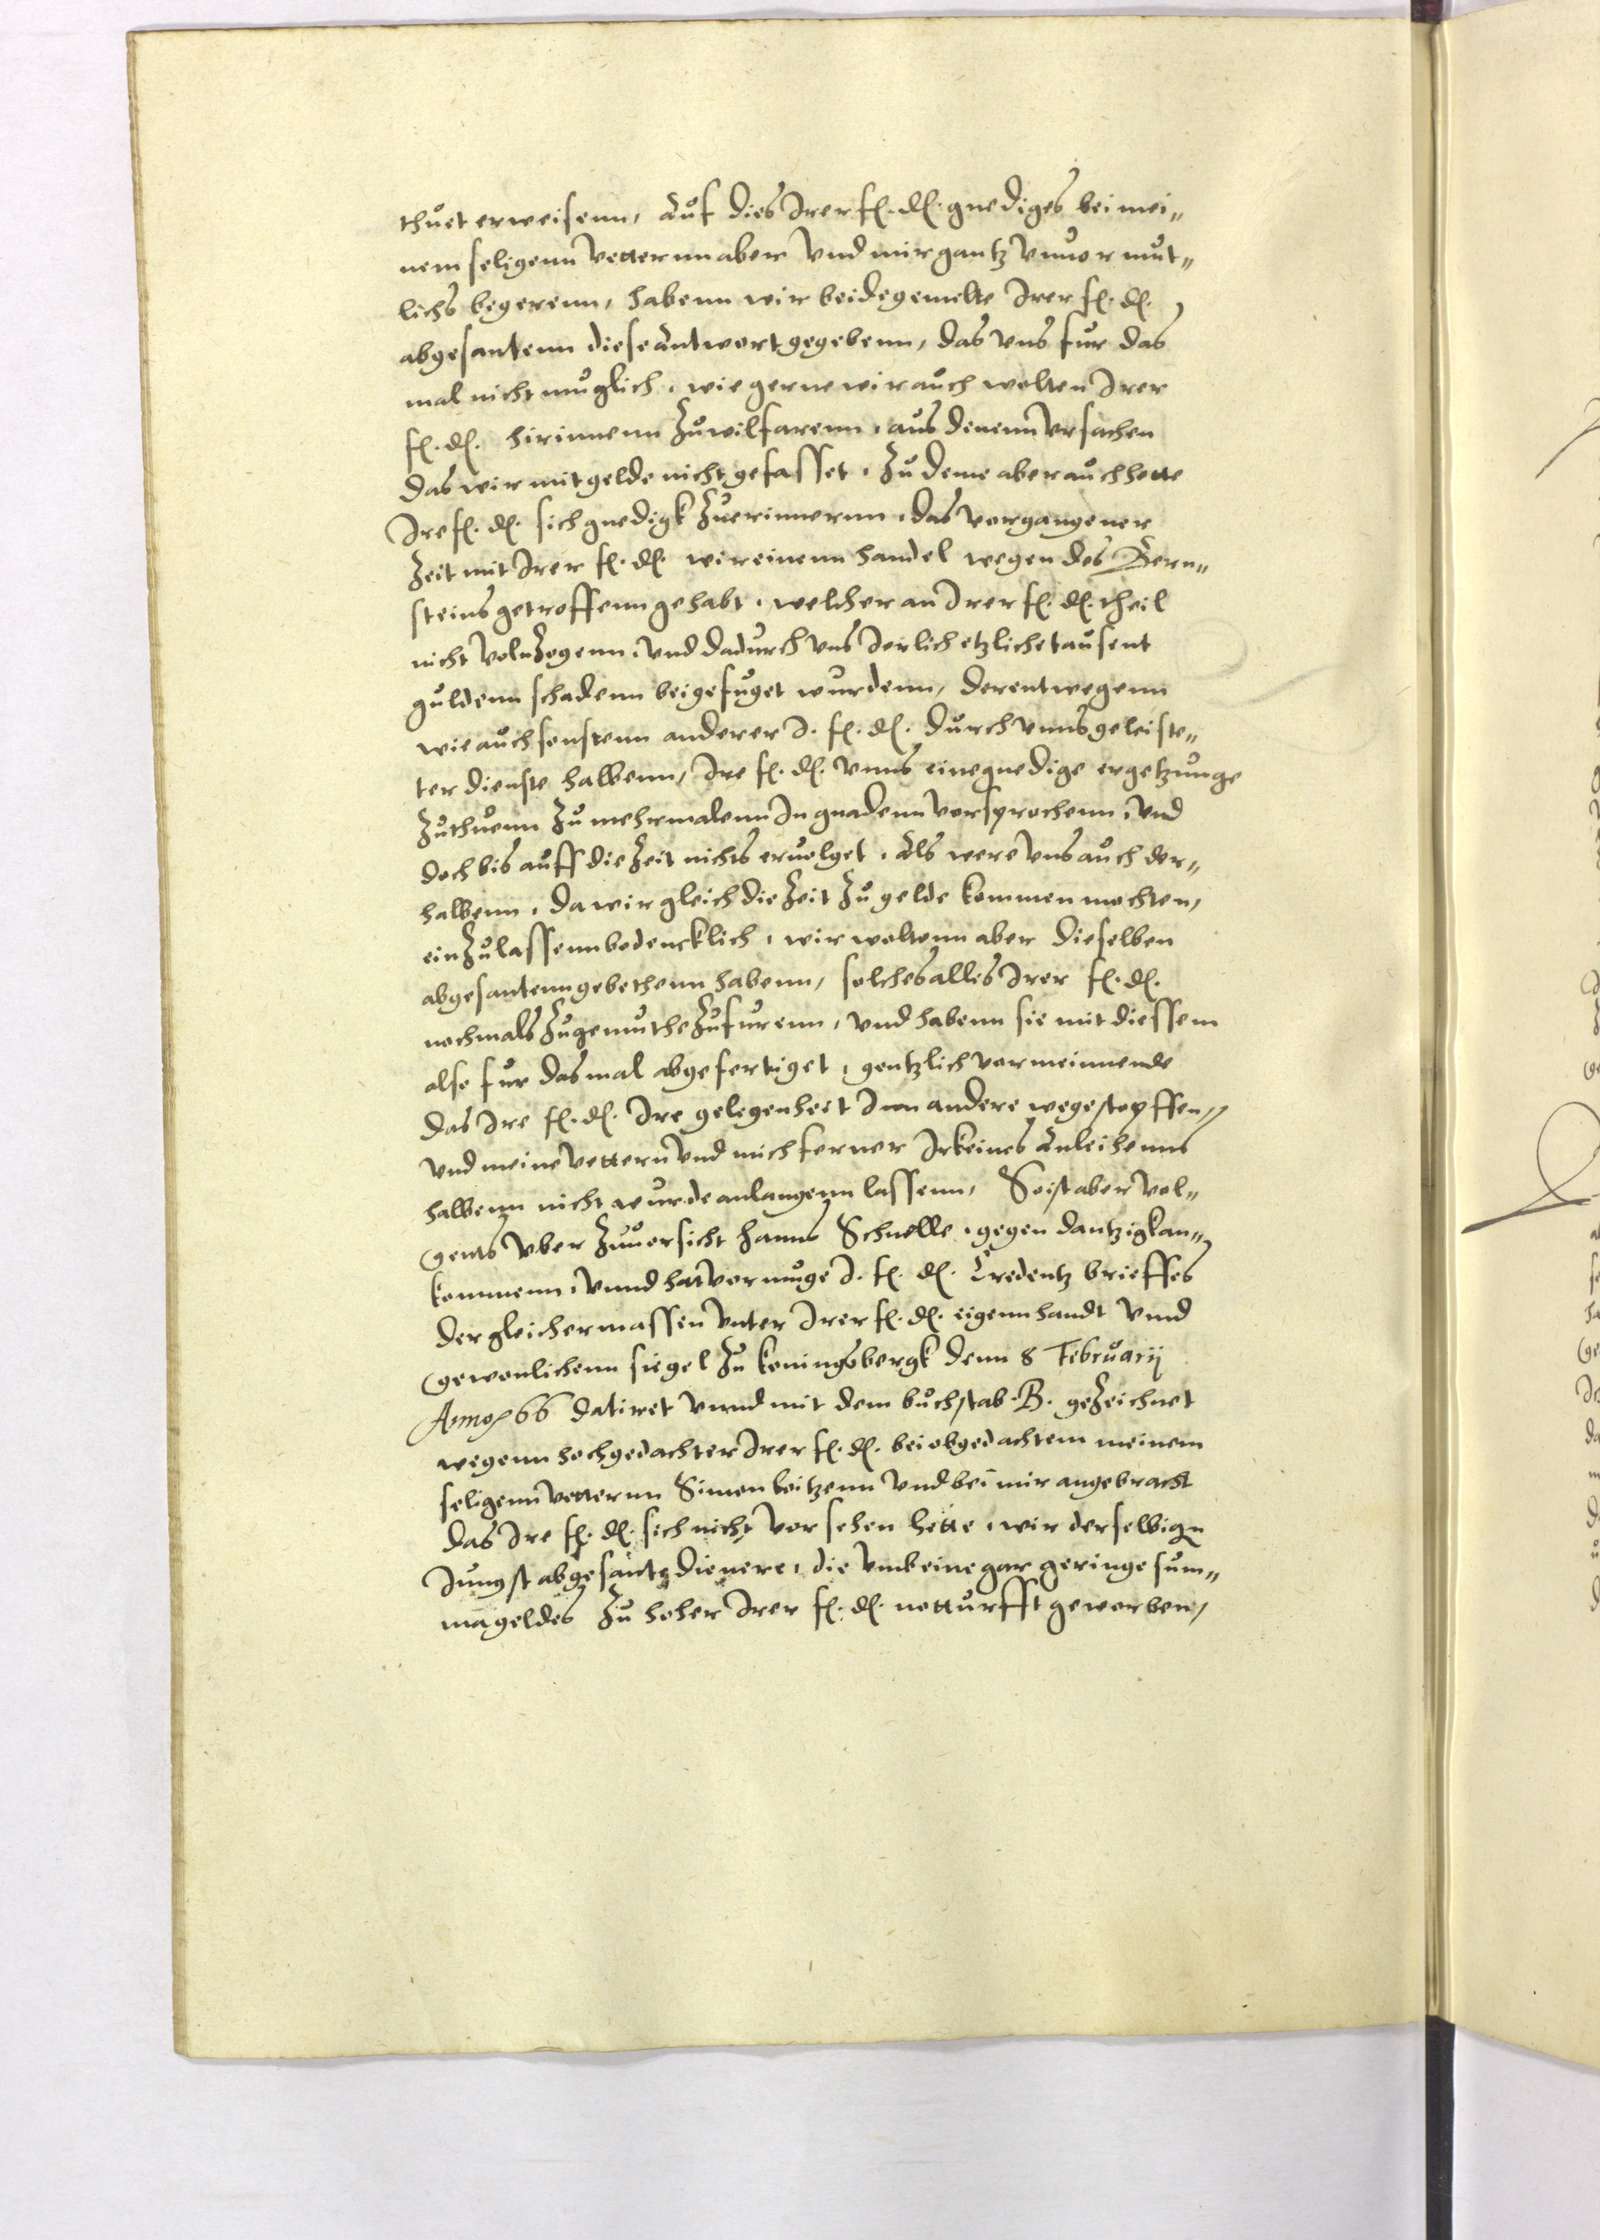 thuet erweisenn, Auf dies Irer f. d. gnediges bei mei„
nem seligenn vetternn aber vnd mir gantz vnuormut„
lichs begerenn, habenn wir beide gemelte Irer f. d.
abgesantenn diese antwort gegebenn, das vns fur das
mal nicht muglich, wie gerne wir auch wolten Irer
f. d. hirinnenn zuwilfarenn, aus denenn vrsachen
das wir mit gelde nicht gefasset, zu deme aber auch hette
Ire f. d. sich gnedigk zuerinnernn, das vorgangener
zeit mit Irer f. d. wir einenn handel wegen des Bern„
steins getroffenn gehabt, welcher an Irer f. d. theil
nicht volnzogenn, vnd dadurch vns Jerlich etzliche tausent
guldenn schadenn beigefuget wurdenn, derentwegenn
wie auch sonstenn anderer I. f. d. durch vnns geleiste„
ter dienste halbenn, Ire f. d. vnns eine gnedige ergetzunge
zuthuenn zu mehrmalenn In gnadenn vorsprochenn, vnd
doch bis auff die zeit nichts eruolget, Als were vns auch der„
halbenn, da wir gleich die zeit zu gelde kommen mochten,
einzulassenn bedencklich, wir woltenn aber dieselben
abgesantenn gebethenn habenn, solches alles Irer f. d.
nochmals zugemuthe zufurenn, vnd habenn sie mit diessem
also fur das mal abgefertiget, gentzlich vormeinnende
das Ire f. d. Ire gelegenheit Inn andere wege stopffen„
vnd meine vettern vnd mich ferner Irkeines Anleihenns
halbenn nicht wurde anlangenn lassenn, So ist aber vol„
gents vber zuuorsicht Hanns Schnelle, gegen dantzigk an„
kommenn, vnnd hat vormuge I. f. d. Credentz brieffes
der gleichermassen vnter Irer f. d. eigenn handt vnnd
gewonlichenn siegel zu koningsbergk denn 8 Februarij
Anno 66 datiret vnnd mit dem buchstab .B. gezeichnet
wegenn hochgedachter Irer f. d. bei obgedachtem meinem
seligenn vetternn Simon loitzenn vnd bei mir angebracht
das Ire f. d. sich nicht vorsehen hette, wir derselbign
Jungst abgesante dienere, die vmb eine gar geringe sum„
ma geldes zu hoher Irer f. d. notturfft geworben,